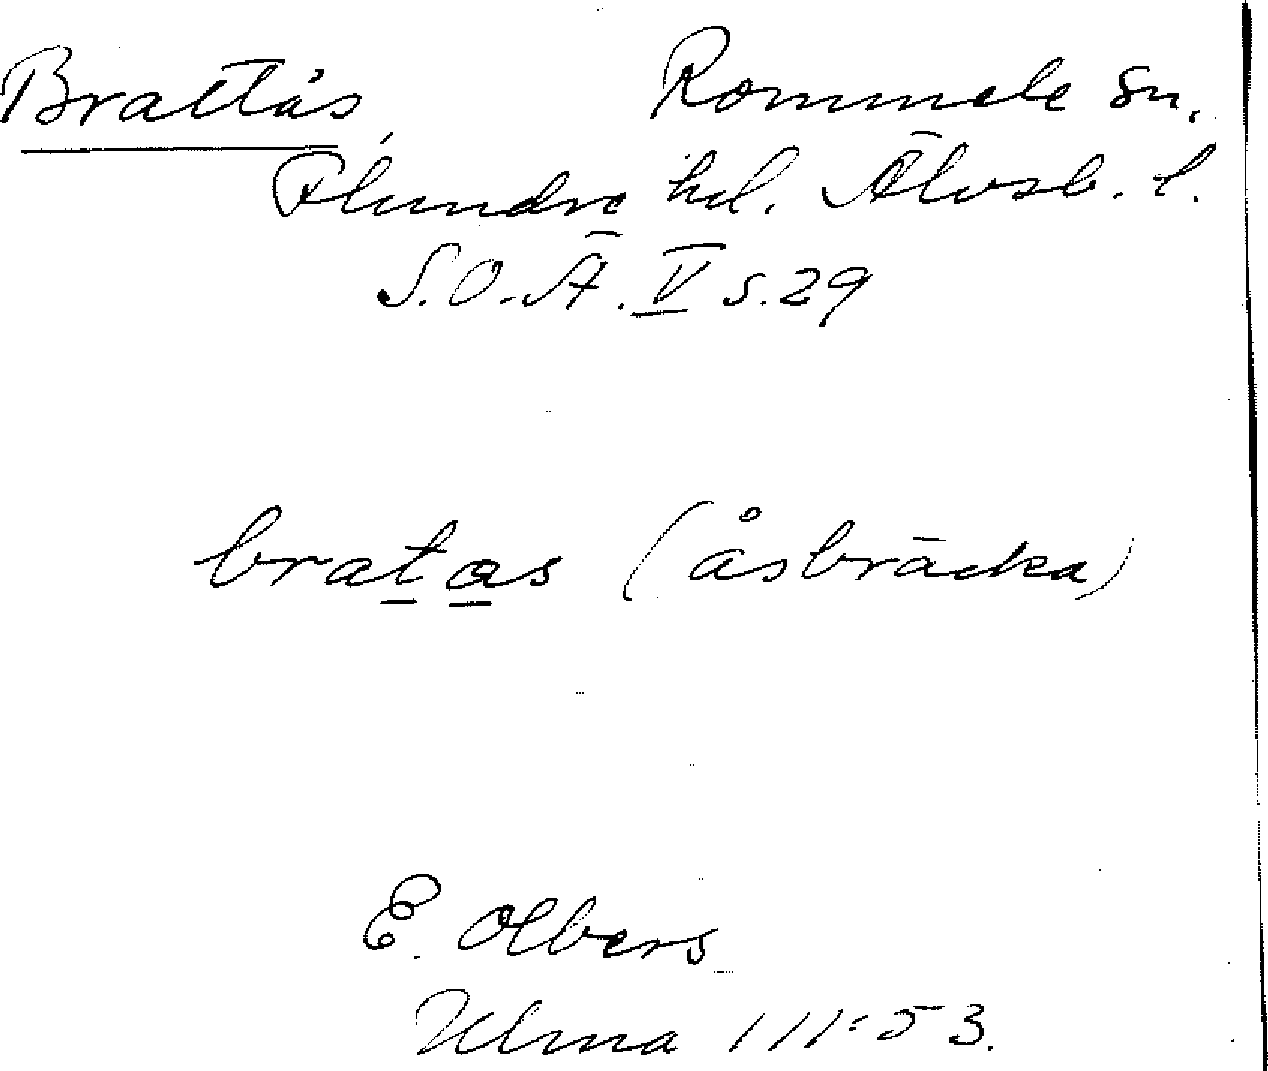 Brattås, Rommele sn.
Flundre hd. Älvsb. l.
S.O.Ä. V s. 29
bratas (åsbräcka)
E. Olbers
Ulma 111:53.